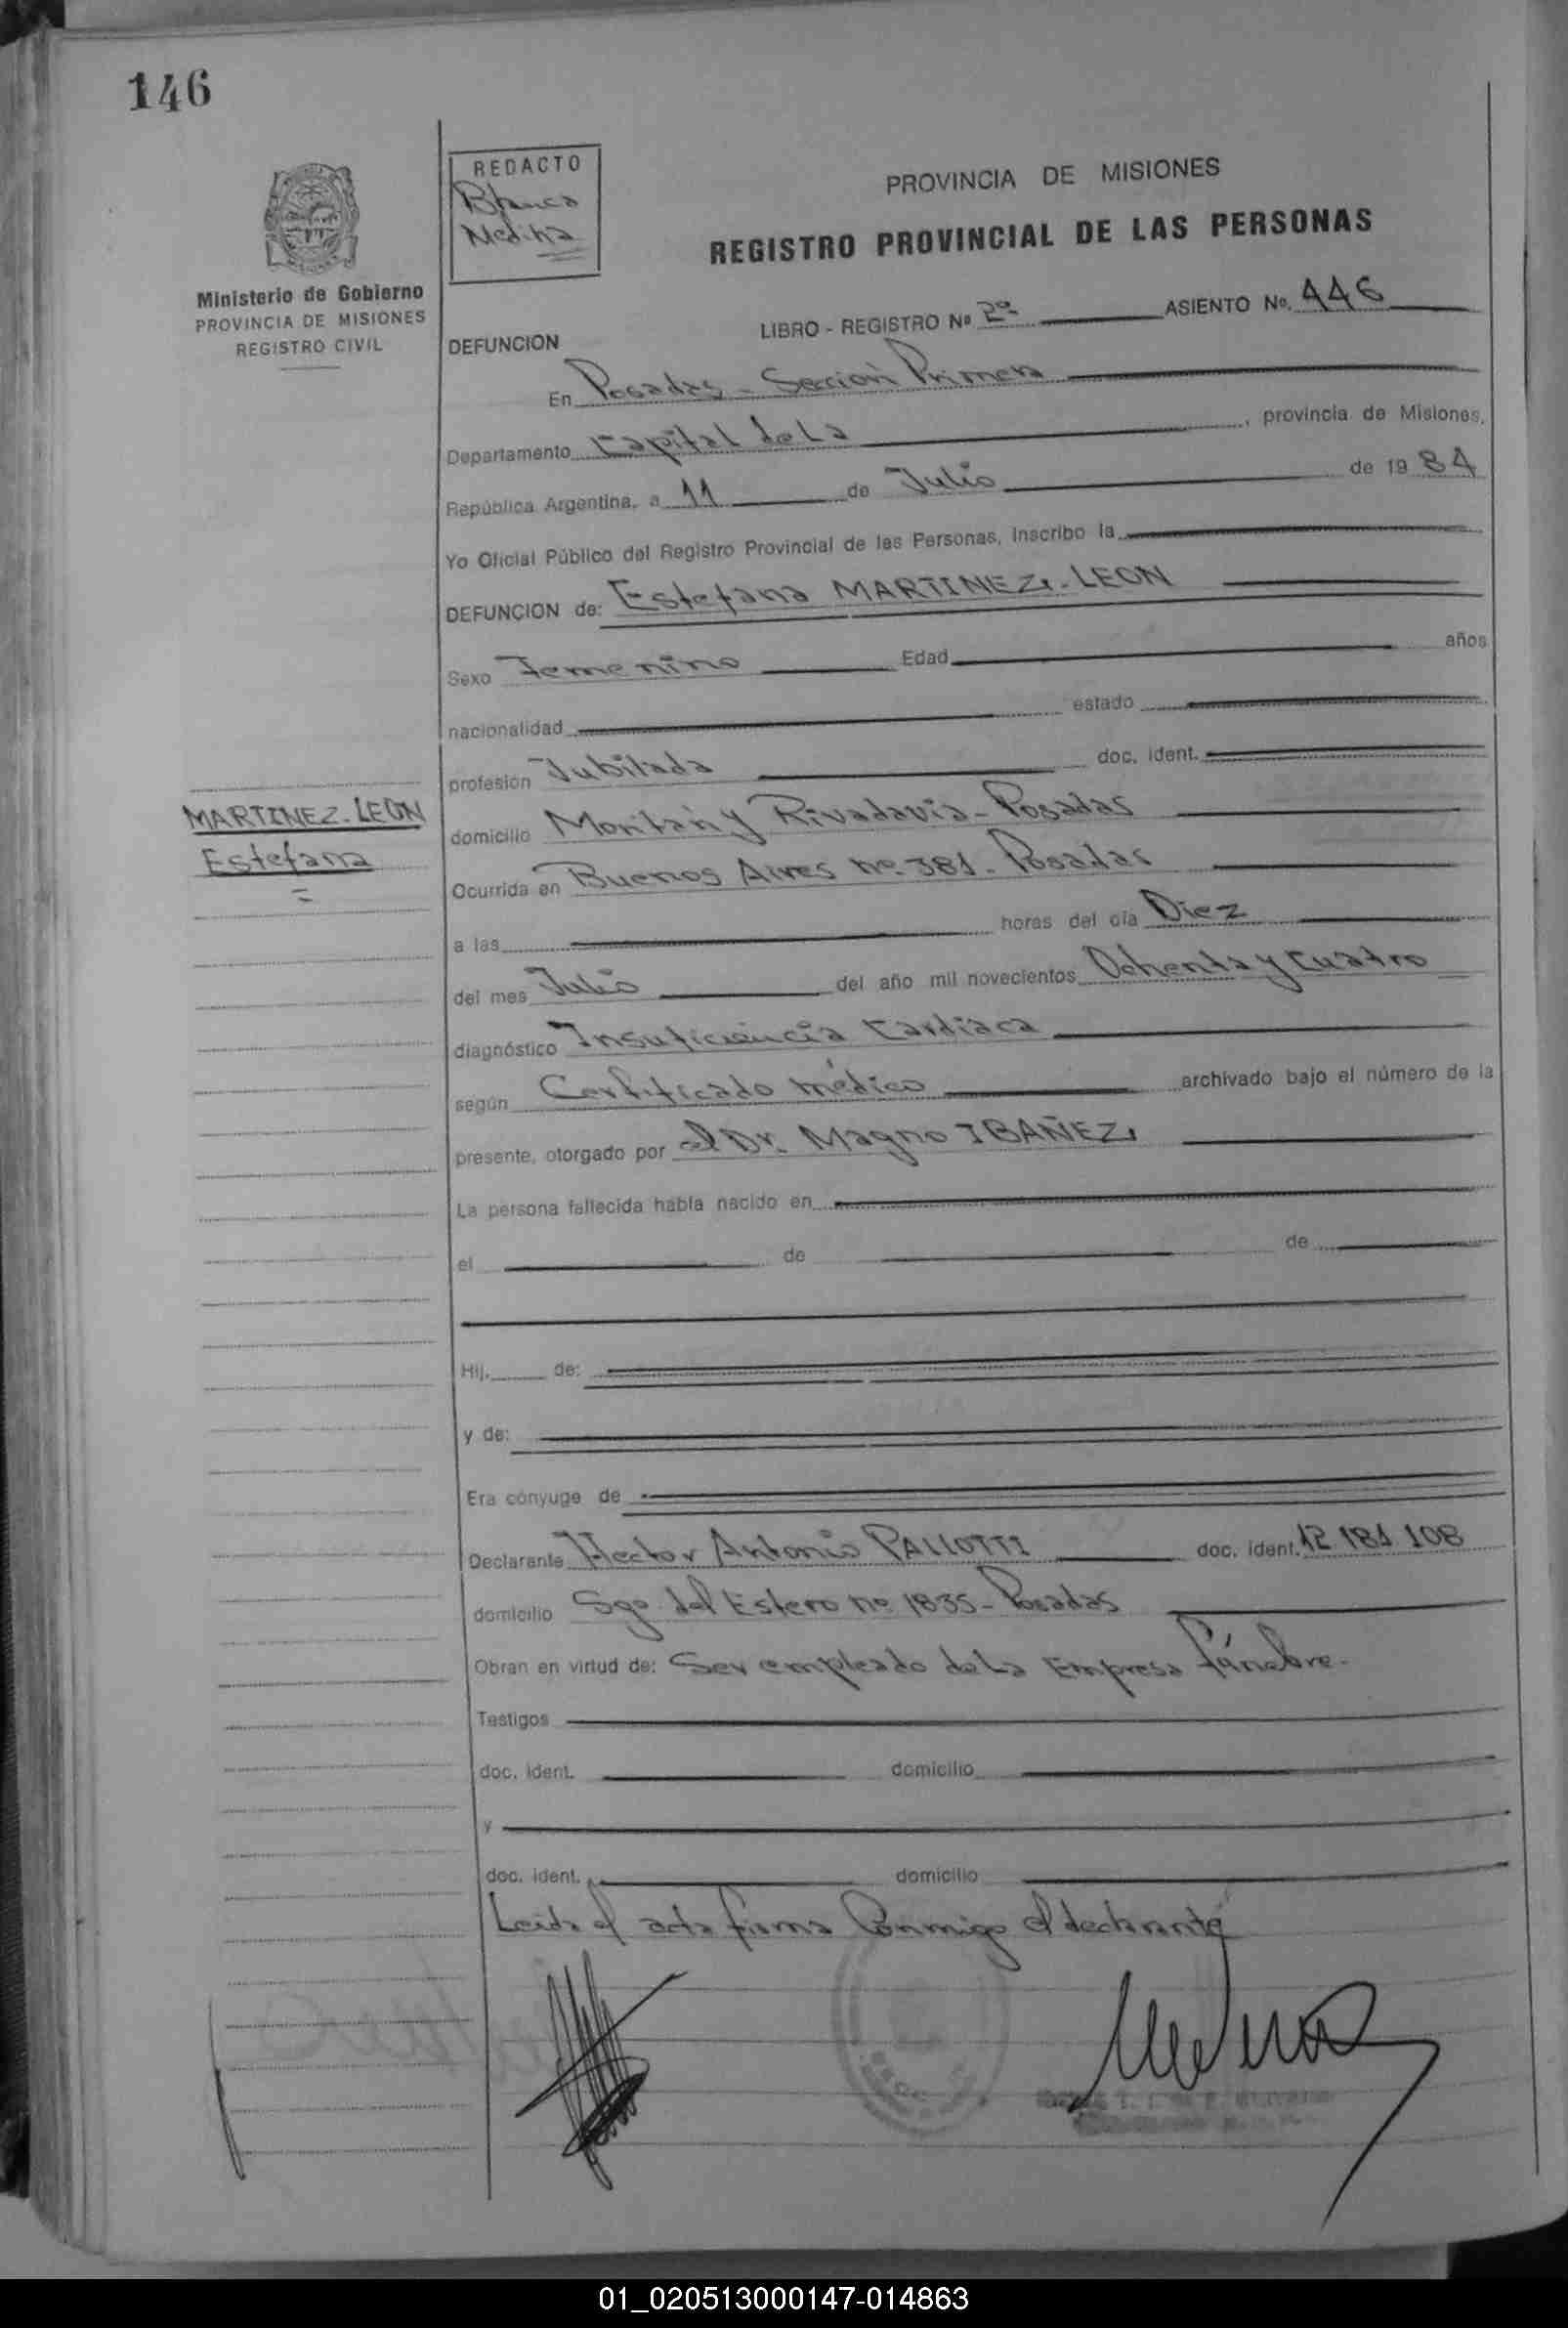 146
REDACTO
Blanca
Medina
Ministerio de Gobierno
PROVINCIA DE MISIONES
REGISTRO CIVIL
PROVINCIA DE MISIONES
REGISTRO PROVINCIAL DE LAS PERSONAS
DEFUNCION LIBRO - REGISTRO Nº 2º ASIENTO No. 446
En Posadas - Sección Primera
Departamento Capital de La , provincia de Misiones,
República Argentina, a 11 de Julio de 19 84
Yo Oficial Público del Registro Provincial de las Personas, inscribo la
DEFUNCION de: Estefana MARTINEZ - LEON
Sexo Femenino Edad años
nacionalidad estado
profesión Jubilada doc. ident.
MARTINEZ - LEON
Estefana
domicilio y Rivadavia - Posadas
Ocurrida en Buenos Aires nº 381 - Posadas
a las horas del día Diez
del mes Julio del año mil novecientos Ochenta y Cuatro
diagnóstico Insuficiencia Cardíaca
según Certificado médico archivado bajo el número de la
presente, otorgado por el Dr. Magno IBAÑEZ
La persona fallecida había nacido en
el de de
Hij. de:
y de:
Era cónyuge de
Declarante Hector Antonio PALLOTTI doc. ident. 12 181 108
domicilio Sgo del Estero nº 1835 - Posadas
Obran en virtud de: Ser empleado de La Empresa fúnebre.
Testigos
doc. ident. domicilio
y
doc. ident. domicilio
Leida el acta firma Conmigo el declarante
01_020513000147-014863